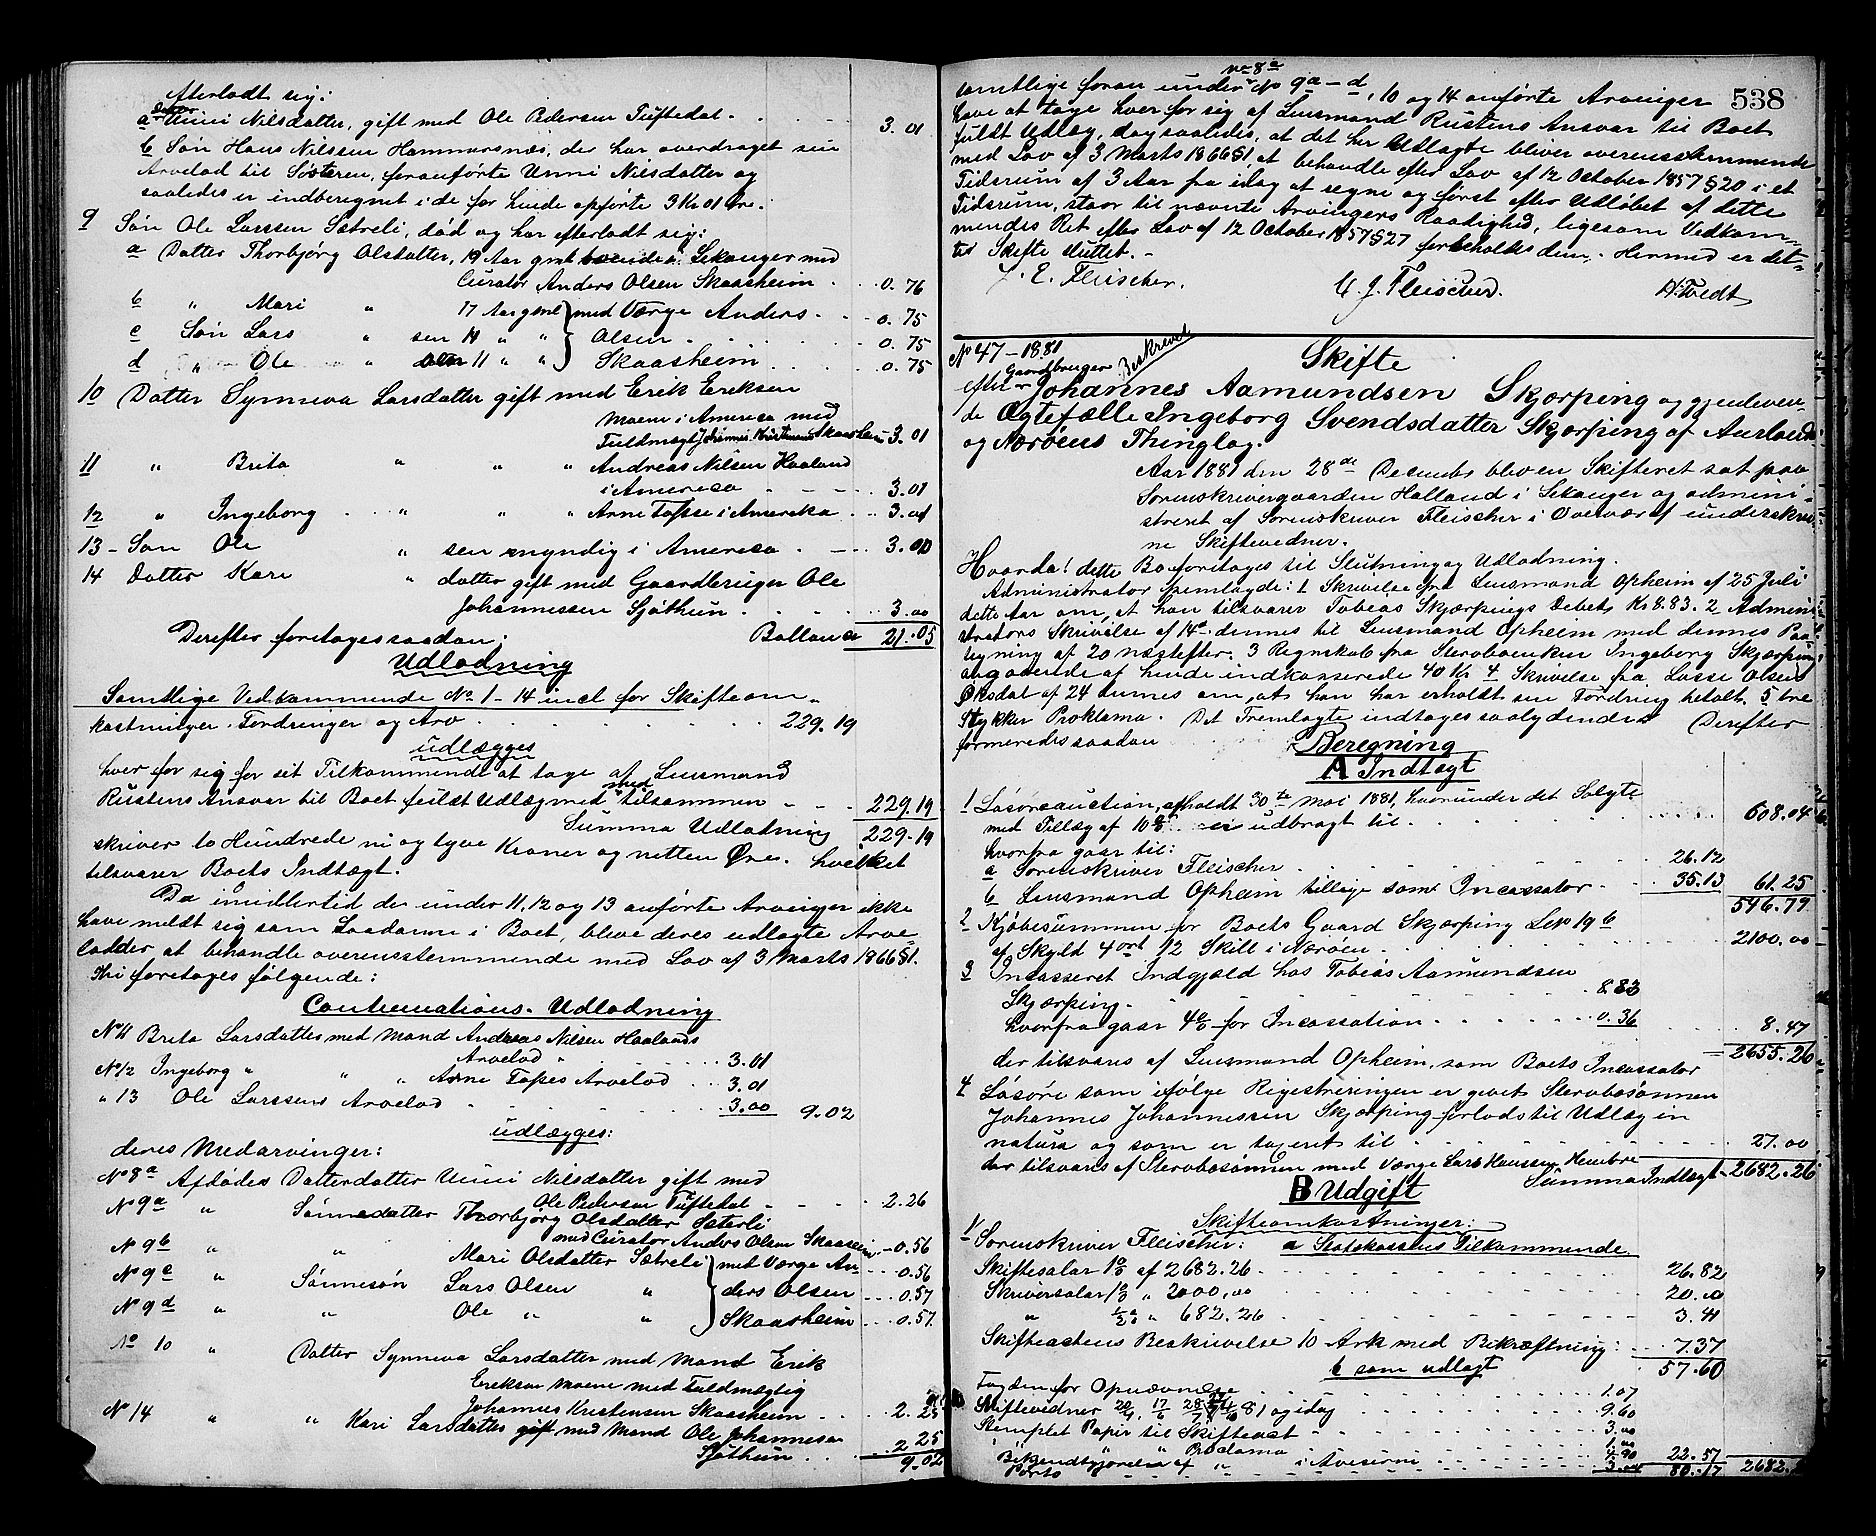 efterladt sig:
a Unni Nilsdatter, gift med Ole Pedersen Tuftedal. 3.01
b Søn Hans Nilssen Hammersnæs, der har overdraget sin
Arvelod til Søsteren, foranførte Unni Nilsdatter og
saaledes er indberegnet i de for hende opførte 3 Kr 01 Øre.
9 Søn Ole Larssen Sætreli, død og har efterladt sig:
a Datter Thorbjørg Olsdatter, 19 Aar gml boende i Lekanger med
Curator Anders Olsen Skaasheim 0.76
b " Mari " 17 Aar gml med Værge Anders 0.75
c Søn Lars " sen 14 " " Olsen 0.75
d " Ole " 11 " " Skaasheim 0.75
10 Datter Synneva Larsdatter gift med Erik Eriksen
Moene i America med
Fuldmægt. Johannes Kristensen Skaasheim 3.01
11 " Brita " " " Andreas Nilsen Haaland
i America 3.01
12 " Ingeborg " " " Arne Fosse i Amerika 3.01
13 Søn Ole " sen myndig i America 3.00
14 Datter Kari " datter gift med Gaardbruger Ole
Johannessen Sjøthun 3.00
Derefter foretoges saadan: Ballance 21.05
Udlodning
Samtlige Vedkommende No 1-14 incl for Skifteom-
kostninger, Fordringer og Arv 229.19
udlægges
hver for sig for sit Tilkommende at tage af Lensmand
Rustens Ansvar til Boet fuldt Udlæg med tilsammen 229.19
Summa Udlodning 229.19
skriver to Hundrede ni og tyve Kroner og nitten Øre. hvilket
tilsvarer Boets Indtægt.
Da imidlertid de under 11, 12 og 13 anførte Arvinger ikke
have meldt sig som Laadanne i Boet, bleve deres udlagte Arve-
lodder at behandle overensstemmende med Lov af 3 Marts 1866 §1.
Thi foretoges følgende:
Continuations-Udlodning
No 11 Brita Larsdatter med Mand Andreas Nilsen Haalands
Arvelod 3.01
No 12 Ingeborg " " " Arne Fosses Arvelod 3.01
" 13 Ole Larssens Arvelod 3.00 9.02
udlægges:
deres Medarvinger:
No 8a Afdødes Datterdatter Unni Nilsdatter gift med
Ole Pedersen Tuftedal 2.26
No 9a " Sønnedatter Thorbjørg Olsdatter Sæterli
med Curator Anders Olsen Skaasheim 0.56
No 9b " " Mari Olsdatter Sætreli med Værge An- 0.56
No 9c " Sønnesøn Lars Olsen " ders Olsen 0.57
No 9d " " Ole " " Skaasheim 0.57
No 10 " Datter Synneva Larsdatter med Mand Erik
Eriksen Moene med Fuldmægtig
Johannes Kristensen Skaasheim 2.25
No 14 " " Kari Larsdatter gift med Mand Ole Johannesen
Sjøthun 2.25
9.02
538
No 8a
samtlige foran under No 9a-d, 10 og 14 anførte Arvinger
have at tage hver for sig af Lensmand Rustens Ansvar til Boet
fuldt Udlæg, dog saaledes, at det her Udlagte bliver overensstemmende
med Lov af 3 Marts 1866 §1, at behandle efter Lov af 12 October 1857 §20 i et
Tidsrum af 3 Aar fra idag at regne og først efter Udløbet af dette
Tidsrum, staar til nævnte Arvingers Raadighed, ligesom Vedkom-
mendes Ret efter Lov af 12 October 1857 §27 forbeholdes dem. Hermed er det-
te Skifte sluttet.
J. E. Fleischer. C. J. Fleischer. H. Tvedt
No 47 - 1881 Beskrevet Skifte
efter Gaardbruger Johannes Aamundsen Skjærping og gjenleven-
de Ægtefælle Ingeborg Svendsdatter Skjærping af Aurlands
og Nærøens Thinglag.
Aar 1881 den 28de December blev en Skifteret sat paa
Sorenskrivergaarden Holland i Lekanger og admini-
streret af Sorenskriver Fleischer i Overvær af underskrev-
ne Skiftevidner.
Hvorda! dette Bo foretoges til Slutning og Udlodning.
Administrator fremlagde: 1 Skrivelse fra Lensmand Opheim af 25 Juli
dette Aar om, at han tilsvarer Tobias Skjærpings Debet, Kr 8.83. 2 Admini-
strators Skrivelse af 14de dennes til Lensmand Opheim med dennes Paa-
tegning af 20 næstefter. 3 Regnskab fra Stervboenken Ingeborg Skjærping
angaaende af hende indkasserede 40 Kr 4 Skrivelse fra Lasse Olsen
Øksdal af 24 dennes om, at han har erholdt sin Fordring betalt. 5 tre
Stykker Proklama. Det Fremlagte indtages saalydende: Derefter
formeredes saadan Beregning
A Indtægt
1 Løsøreauction, afholdt 30te Mai 1881, hvorunder det Solgte
med Tillæg af 10 % er udbragt til 608.04
hvorfra gaar til:
a Sorenskriver Fleischer 26.12
b Lensmand Opheim tillige som Incassator 35.13 61.25
546.79
2 Kjøbesummen for Boets Gaard Skjærping LNo 19 b
af Skyld 4 ort 12 Skill i Nærøen 2100.00
3 Incasseret Indgjæld hos Tobias Aamundsen
Skjærping 8.83
hvorfra gaar 4% for Incassation 0.36 8.47
der tilsvares af Lensmand Opheim, som Boets Incassator 2655.26
4 Løsøre som ifølge Registreringen er givet Stervbosønnen
Johannes Johannessen Skjærping forlods til Udlæg in
natura og som er taxeret til 27.00
der tilsvares af Stervbosønnen med Værge Lars Hanssen Heubre Summa Indtægt 2682.26
B Udgift
Skifteomkostninger:
1 Sorenskriver Fleischer: a Statskassens Tilkommende.
Skiftesalar 1% af 2682.26 26.82
Skriversalar 1% " 2000.00 20.00
" 1/2% " 682.26 3.41
Skifteactens Beskrivelse 10 Ark med Bekræftning: 7.37
b som udlagt 57.60
Fogden for Opnævnelse 1.07
Skiftevidner 81 og idag 9.60
Stemplet Papir til Skifteact 3.00
" " " Proclama 1.00
Bekjendtgjørelse af " i Aviserne 4.90 22.57
Porto 3.00 80.17 2682.26